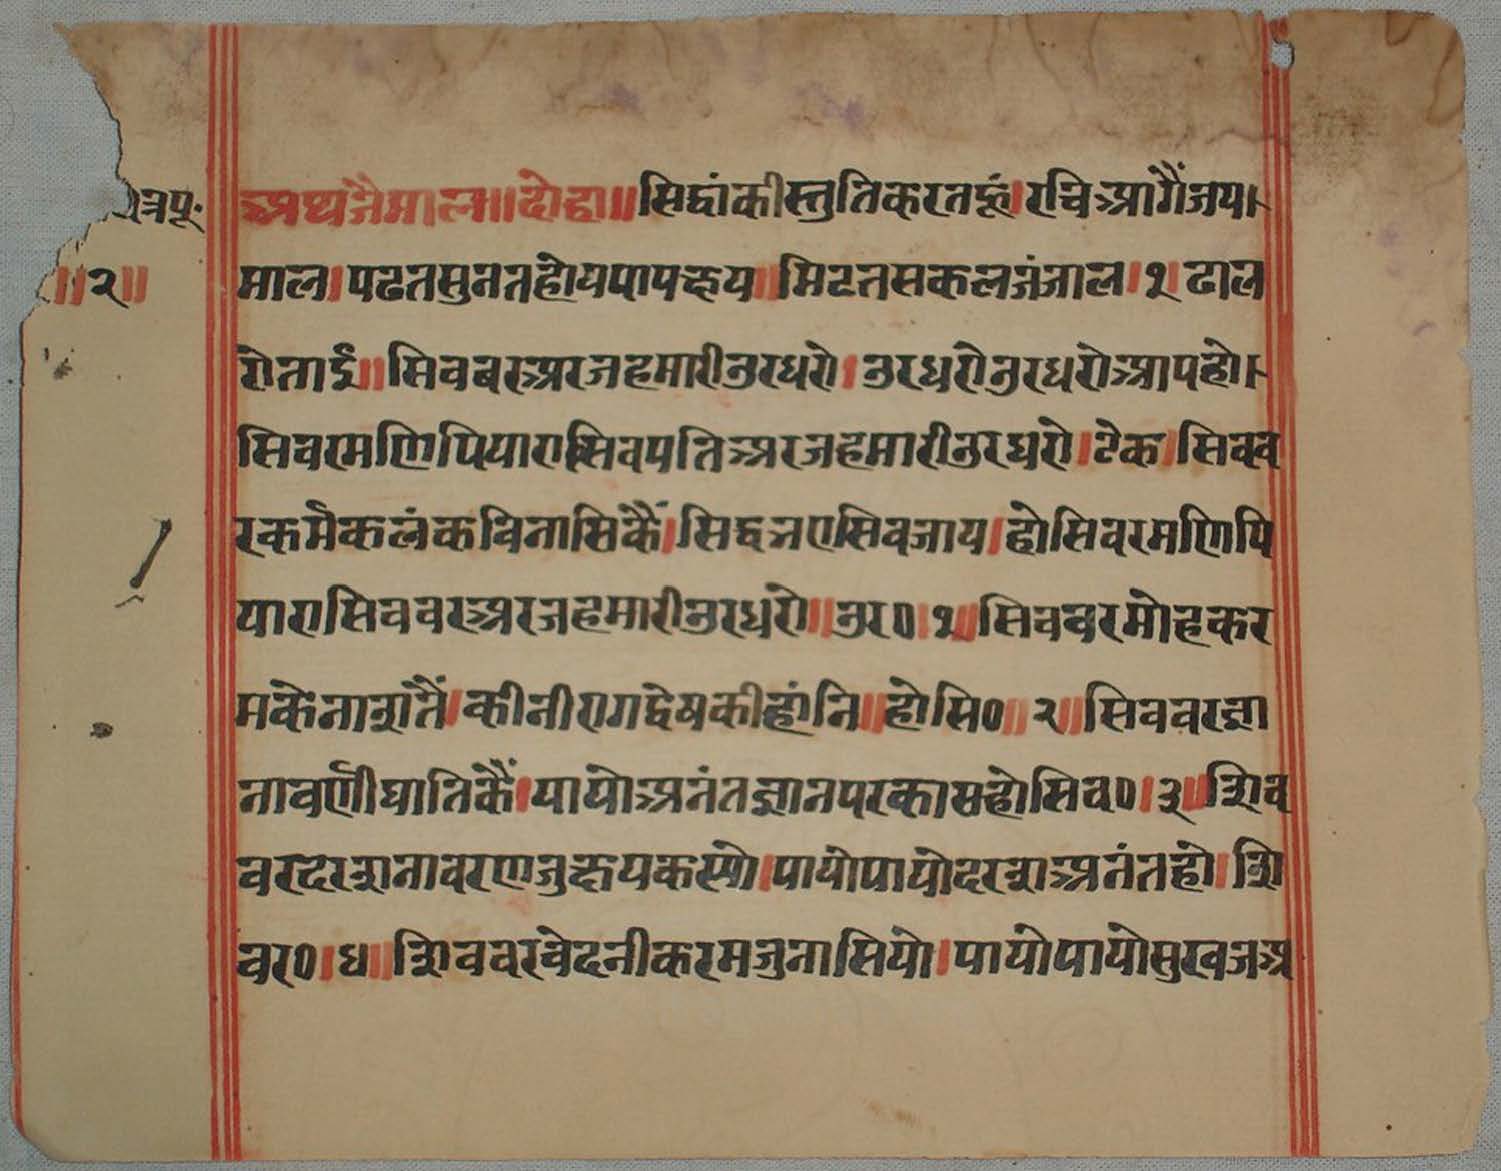 त्रपू॰ अथ जैमाल॥ दोहा॥ सिद्धांकीस्तुतिकरतहूं।रचिआगैंजय।
॥२॥ माल।पढतसुनतहोयपापक्षय॥मिटतसकलजंजाल।१।ढाल
रोनाई॥सिवबरअरजहमारीउरधरो।उरधरोउरधरोआपहो।
सिवरमणिपियारासिवपतिअरजहमारीउरधरो।टेक।सिवव
रकर्मकलंकविनासिकैं।सिद्धनएसिवजाय।होसिवरमणिपि
यारासिववरअरजहमारीउरधरो॥उर०।१॥सिववरमोहकर
मकेनाशतैं।कीनीरागद्वेषकीहांनि॥होसि०॥२॥सिववरज्ञा
नावर्णीघातिकैं।पायोअनंतज्ञानपरकासहोसिव०।३॥शिव
वरदरशनावरणजुक्षयकस्यो।पायोपायोदरशअनंतहो।शि
वर०।४॥शिववरवेदनीकरमजुनासियो।पायोपायोसुखजअ